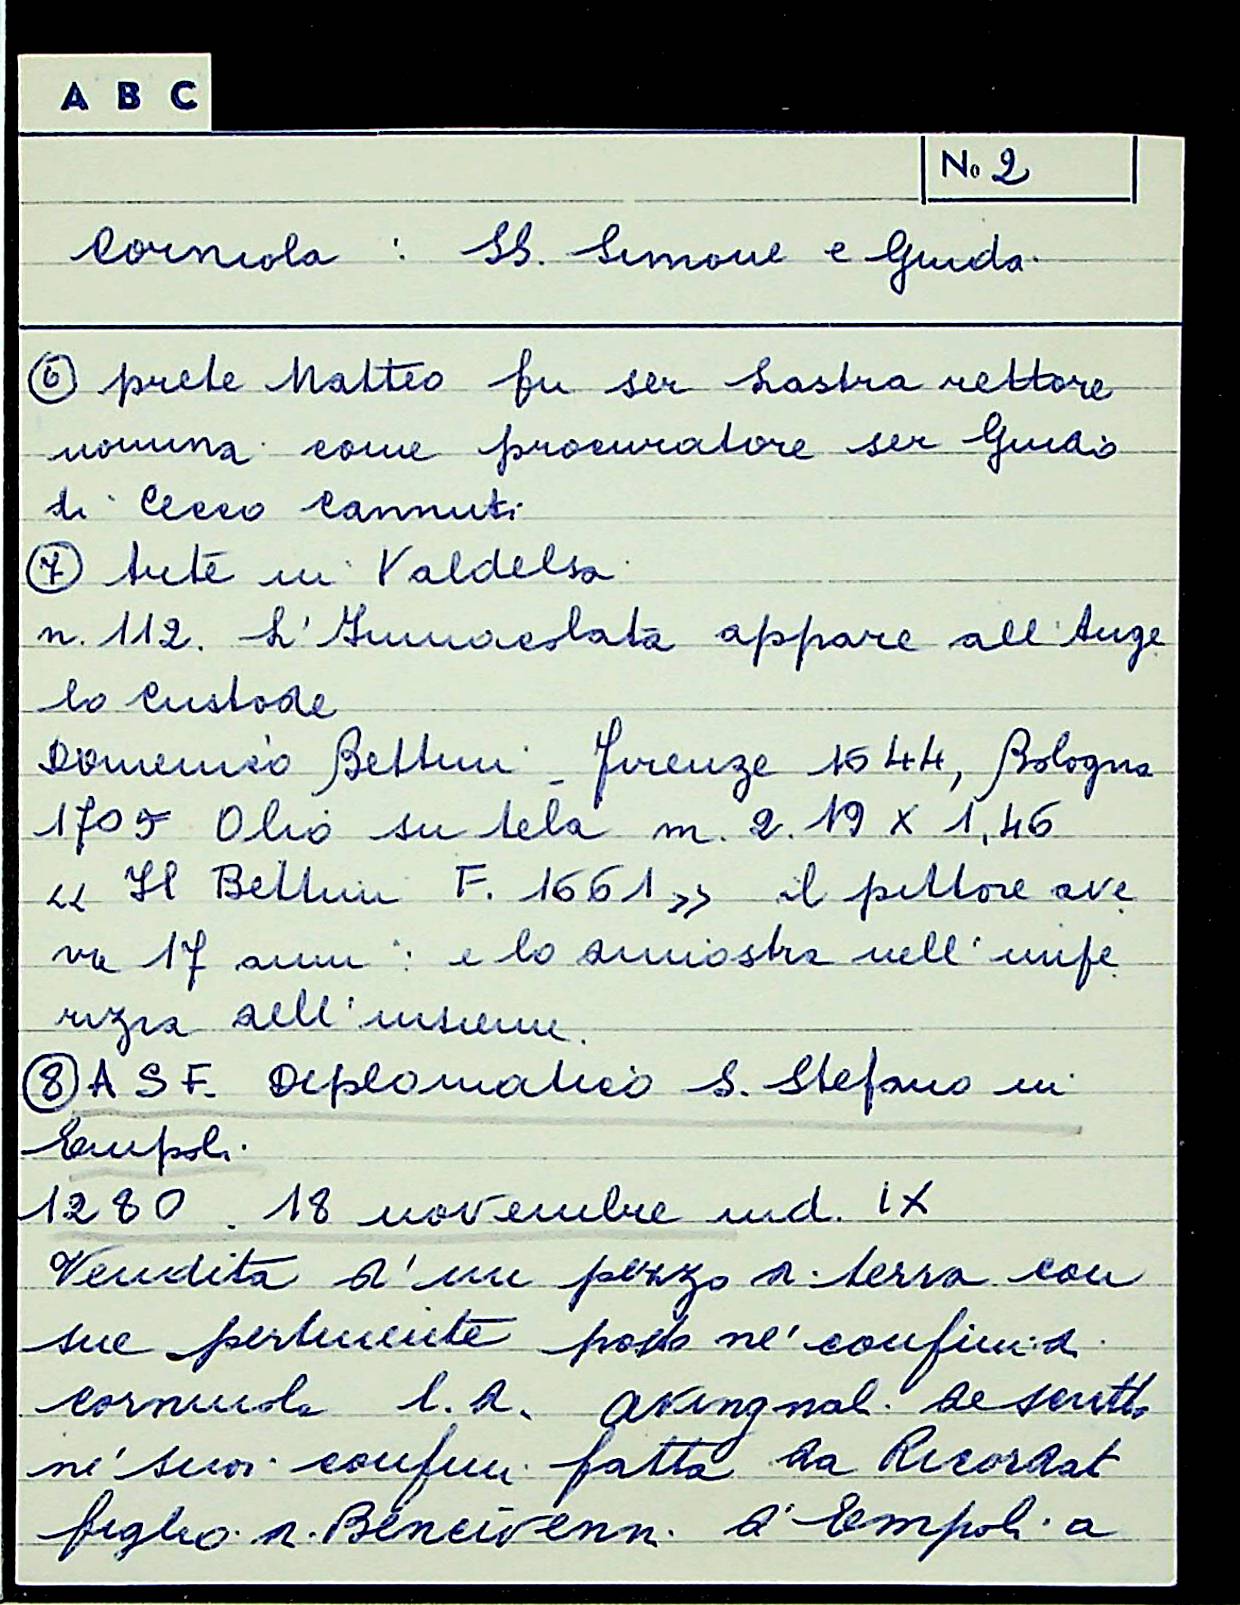 A B C
No 2
Corniola : SS. Simone e Giuda
⑥ prete Matteo fu ser Lastra rettore
nomina come procuratore ser Guido
di Cecco Cannuti
⑦ Arte in Valdelsa
n. 112. L'Immacolata appare all'Ange
lo Custode
Domenico Bettini - Firenze 1644, Bologna
1705 Olio su tela m. 2.19 x 1,46
« Il Bettini F. 1661 » il pittore ave
va 17 anni : e lo dimostra nell'infe
rizia dell'insieme.
⑧ A S F. Diplomatico S. Stefano in
Empoli.
1280 . 18 novembre ind. IX
Vendita d'un pezzo di terra con
sue pertinente posto ne' confini di
Corniola l. d. Avingnal. descritto
ne' suoi confini fatta da Ricordat
figlio di Bencivenn. d'Empoli a